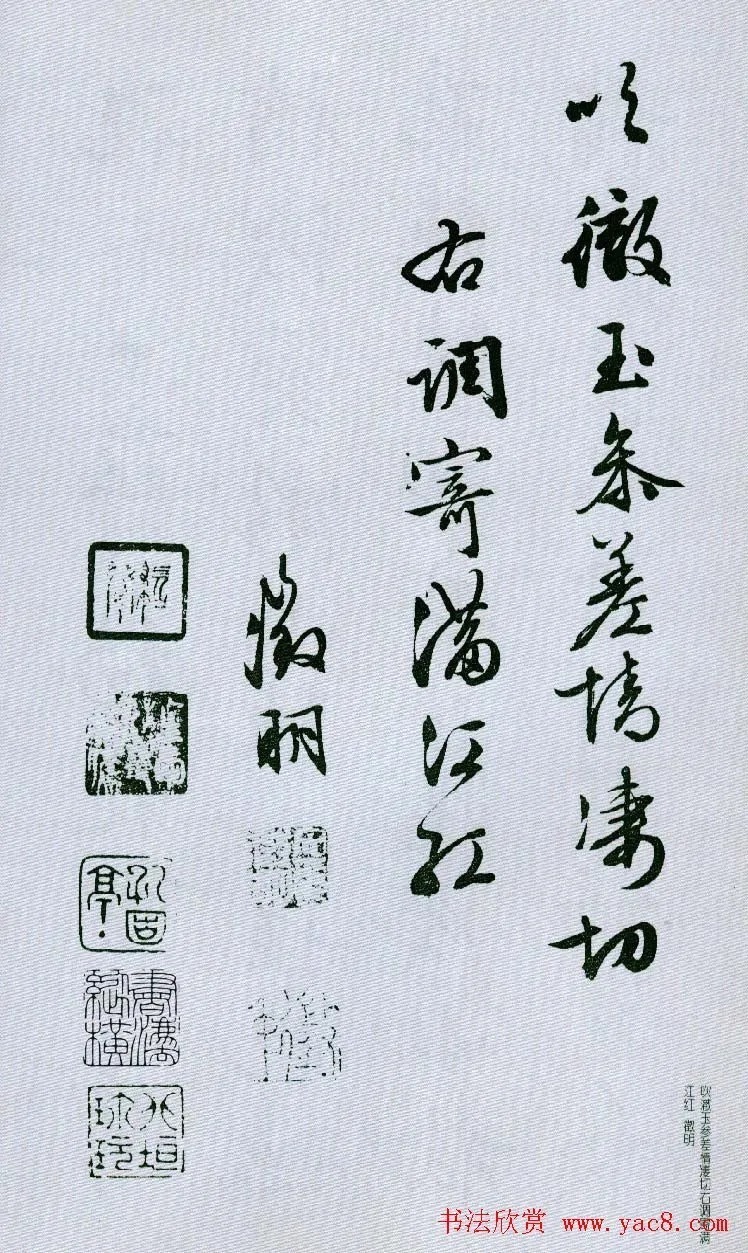 吹徹玉參差情凄切
右調寄滿江紅
徵明
吹澈玉参差情凄切右调寄满
江红 徵明
书法欣赏 www.yac8.com